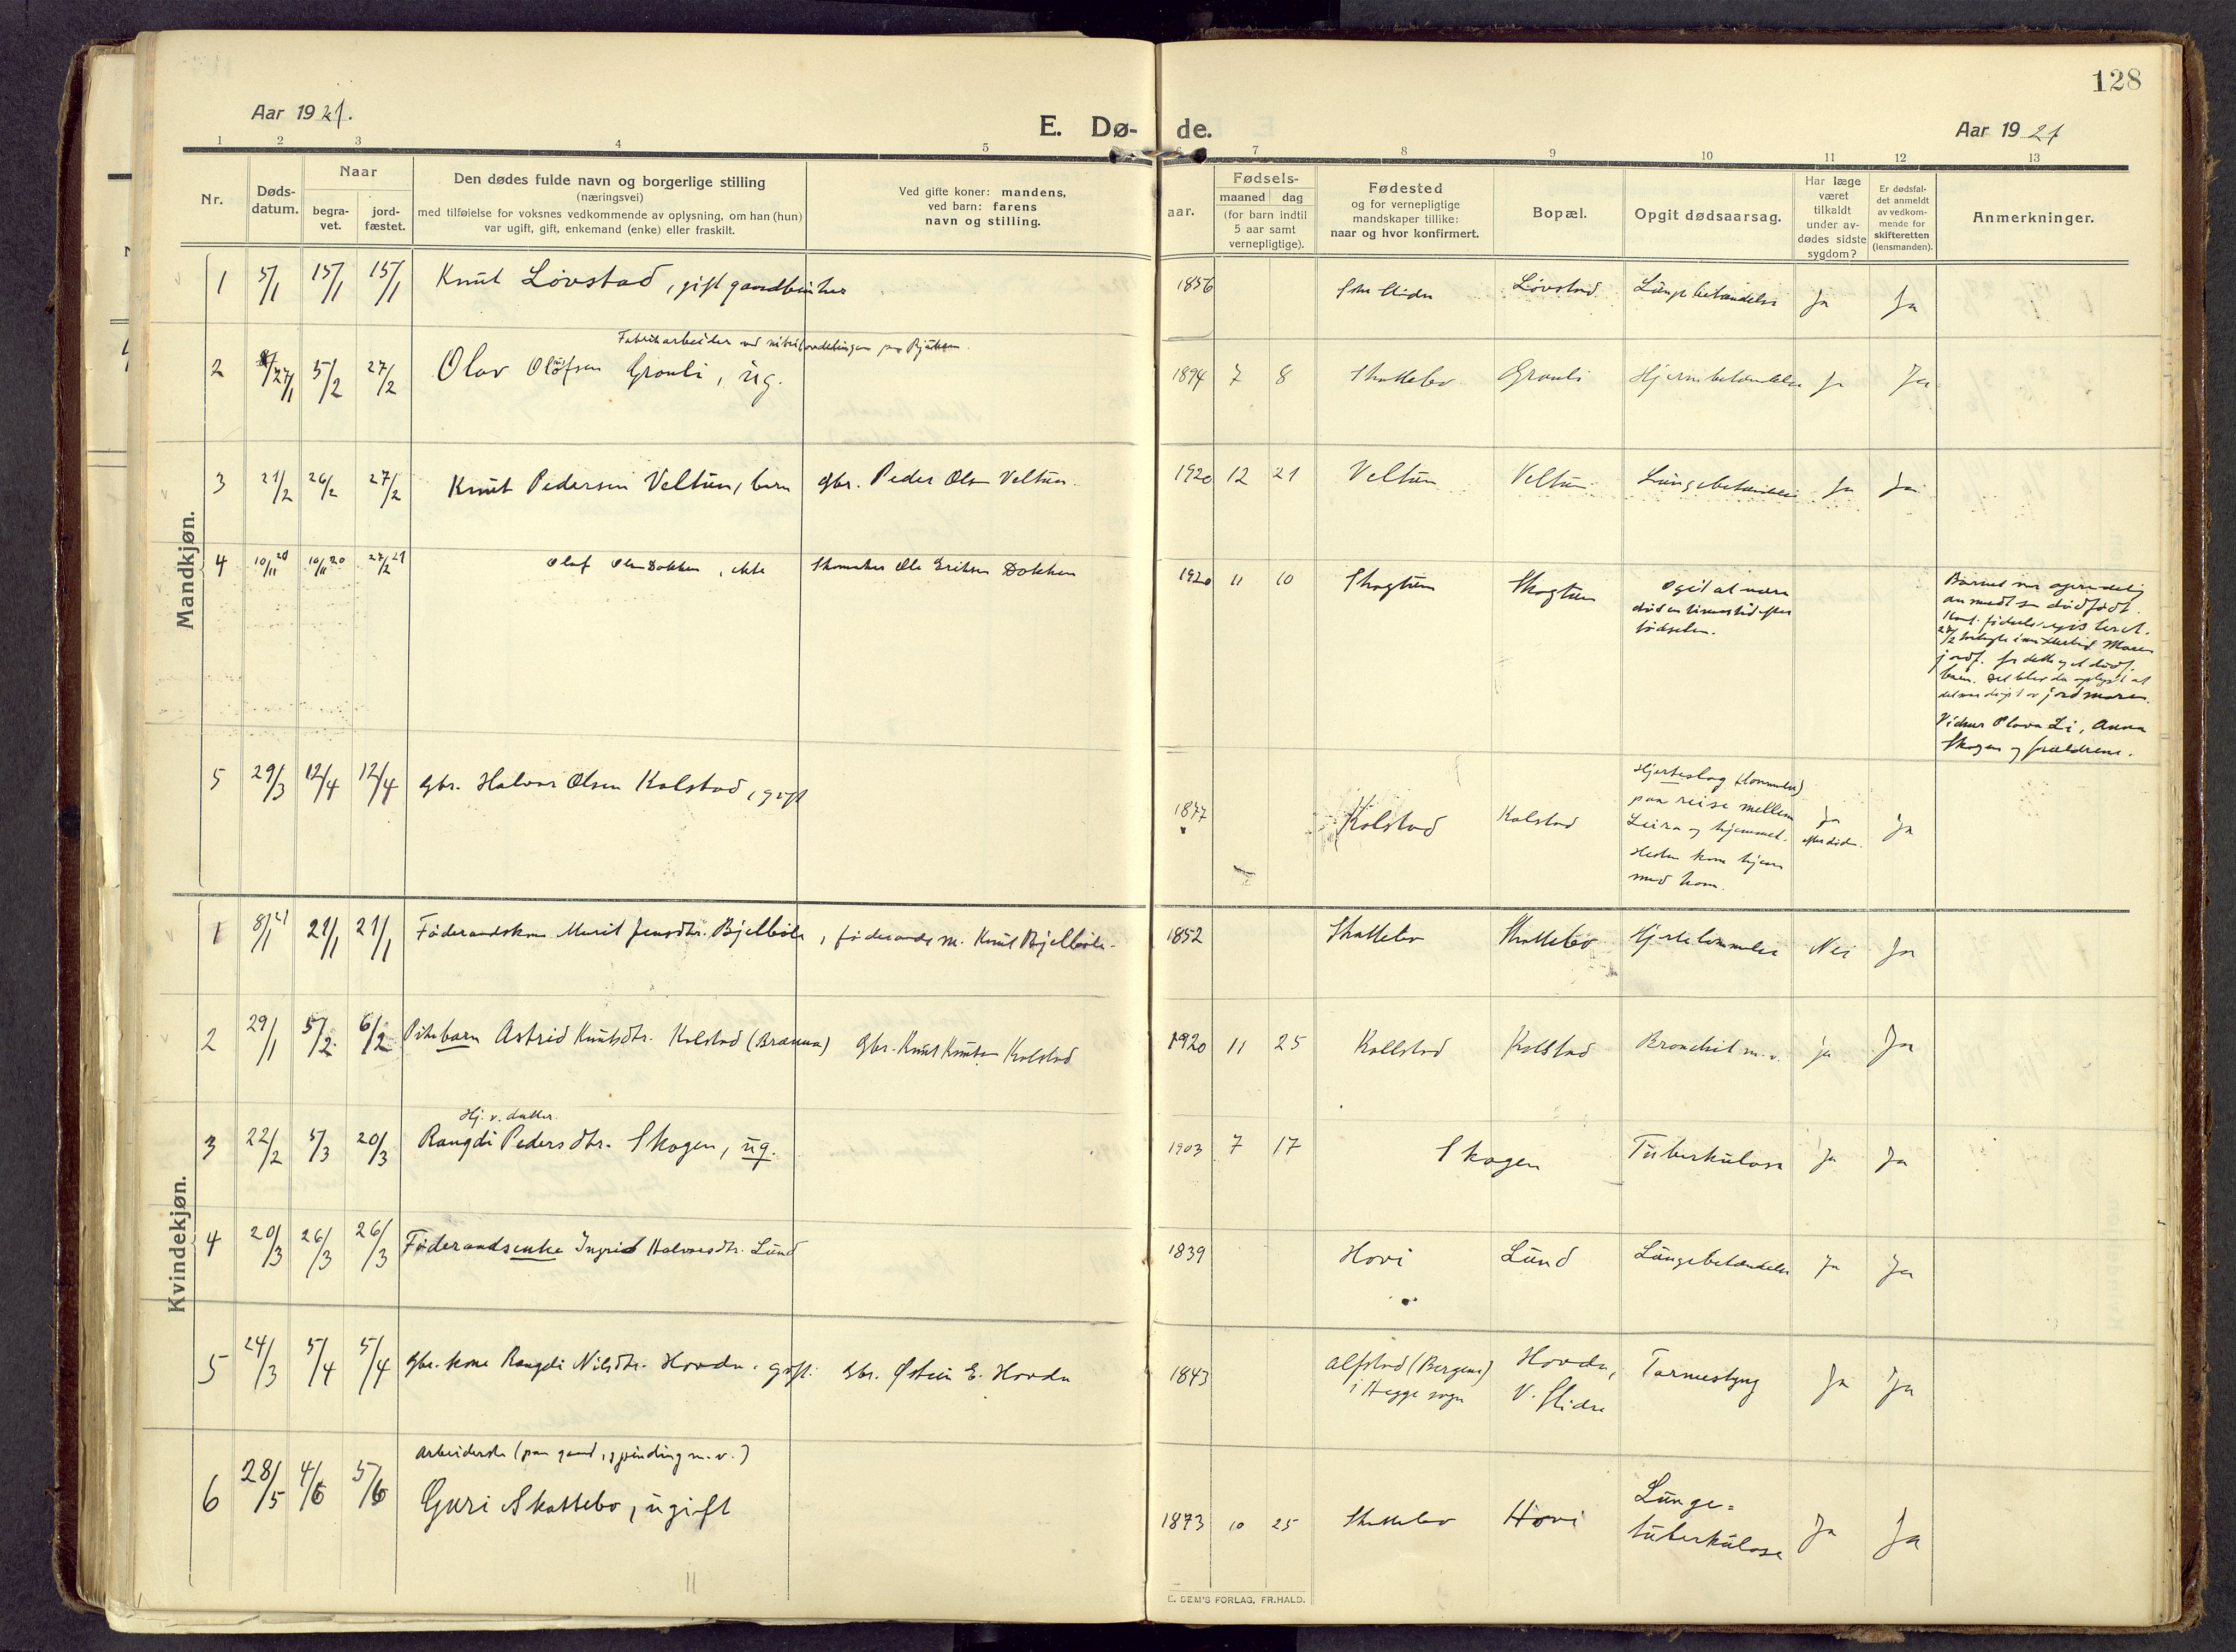 128
Aar 1921.
E. Dø-de.
Aar 1921
1 2 3 4 5 6 7 8 9 10 11 12 13
Nr.
Døds-
datum.
Naar
begra-
vet.
jord-
fæstet.
Den dødes fulde navn og borgerlige stilling
(næringsvei)
med tilføielse for voksnes vedkommende av oplysning, om han (hun)
var ugift, gift, enkemand (enke) eller fraskilt.
Ved gifte koner: mandens,
ved barn: farens
navn og stilling.
aar.
Fødsels-
maaned dag
(for barn indtil
5 aar samt
vernepligtige).
Fødested
og for vernepligtige
mandskaper tillike:
naar og hvor konfirmert.
Bopæl.
Opgit dødsaarsag.
Har læge
været
tilkaldt
under av-
dødes sidste
sygdom?
Er dødsfal-
det anmeldt
av vedkom-
mende for
skifteretten
(lensmanden).
Anmerkninger.
Mandkjøn.
1 5/1 15/1 15/1 Knut Lövstad, gift gaardbruker 1856 Lövstad Lungebetændelse Ja Ja
Fabrikarbeider ved
2 27/1 5/2 27/2 Olav Olofsen Grønli, ug. 1894 7 8 Skattebo Grønli Hjernebetændelse Ja Ja
3 21/2 26/2 27/2 Knut Pedersen Veltun, barn gbr. Peder Olsen Veltun. 1920 12 21 Veltun Veltun Lungebetændelse Ja Ja
4 10/11 20 16/11 20 27/2 21 Olaf Olsen Dokken, ekte Skomaker Olle Eriksen Dokken 1920 11 10 Skogtun Skogtun Opgit at være
død en times tid efter
fødselen.
Barnet var
anmeldt som dødfødt.
27/2
jordf. for dette
barn. Det blev da oplyst at
jordmoren.
Vidner Olava Li, Anna
Skogen og forældrene.
5 29/3 12/4 12/4 gbr. Halvor Olsen Kolstad, gift 1877 Kolstad Kolstad Hjerteslag
paa reise mellem
Leira og hjemmet.
Hesten kom hjem
med ham.
Ja
efter død Ja
Kvindekjøn.
1 8/1 21 21/1 21/1 Föderaadskone Marit Jensdtr. Bjelbøle, föderaadsm. Knut Bjelbøle. 1852 Skattebo Skattebo Hjertelammelse Nei Ja
2 29/1 5/2 6/2 Pikebarn Astrid Knutsdtr. Kolstad (Brænna) gbr. Knut Knutsen Kolstad 1920 11 25 Kollstad Kolstad Bronchit m.v. ja Ja
Hj. v. datter.
3 22/2 5/3 20/3 Rangdi Pedersdtr. Skogen, ug. 1903 7 17 Skogen Tuberkulose Ja Ja
4 20/3 26/3 26/3 Föderaadsenke Ingrid Halvorsdtr. Lund 1839 Hovi Lund Lungebetændelse Ja Ja
5 24/3 5/4 5/4 gbr. kone Rangdi Nilsdtr. Hovda. gift. gbr. Østein E. Hovda 1843 Alfstad (Bergene)
i Hegge sogn
Hovda,
V. Slidre
Tarmeslyng Ja Ja
Arbeiderske (paa gaard, spinding m.v.)
6 28/5 4/6 5/6 Guri Skattebo, ugift 1873 10 25 Skattebo Hovi Lunge=
tuberkulose Ja Ja
E. SEM'S FORLAG, FR.HALD.